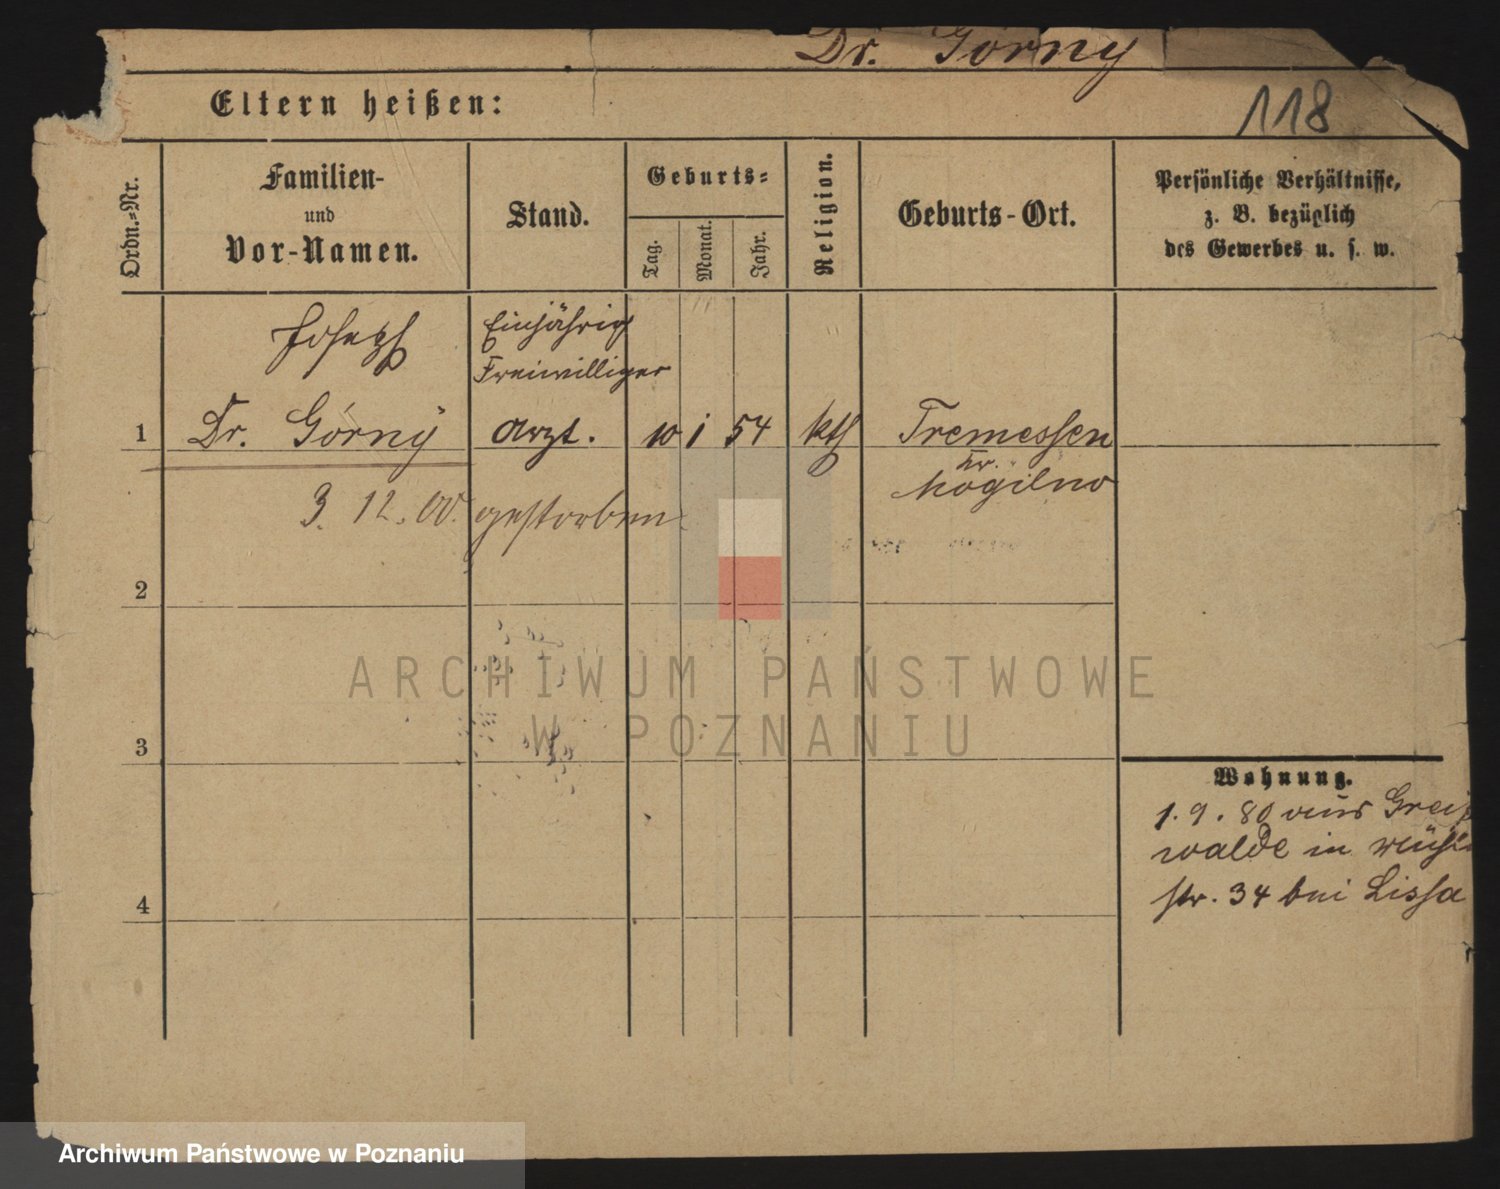 Dr. Górny
118
Eltern heißen:
Ordn.=Nr.
Familien-
und
Vor-Namen.
Stand.
Geburts=
Tag.
Monat.
Jahr.
Religion.
Geburts-Ort.
Persönliche Verhältnisse,
z. B. bezüglich
des Gewerbes u. s. w.
Joseph
Einjährig
Freiwilliger
1 Dr. Górny Arzt. 10 1 54 kth Tremessen
Kr.
Mogilno
3. 12. 00. gestorben
2
ARCHIWUM PAŃSTWOWE
W POZNANIU
3
Wohnung.
1. 9. 80 aus Greifs
walde in Mühlen
str. 34 bei Lissa
4
Archiwum Państwowe w Poznaniu